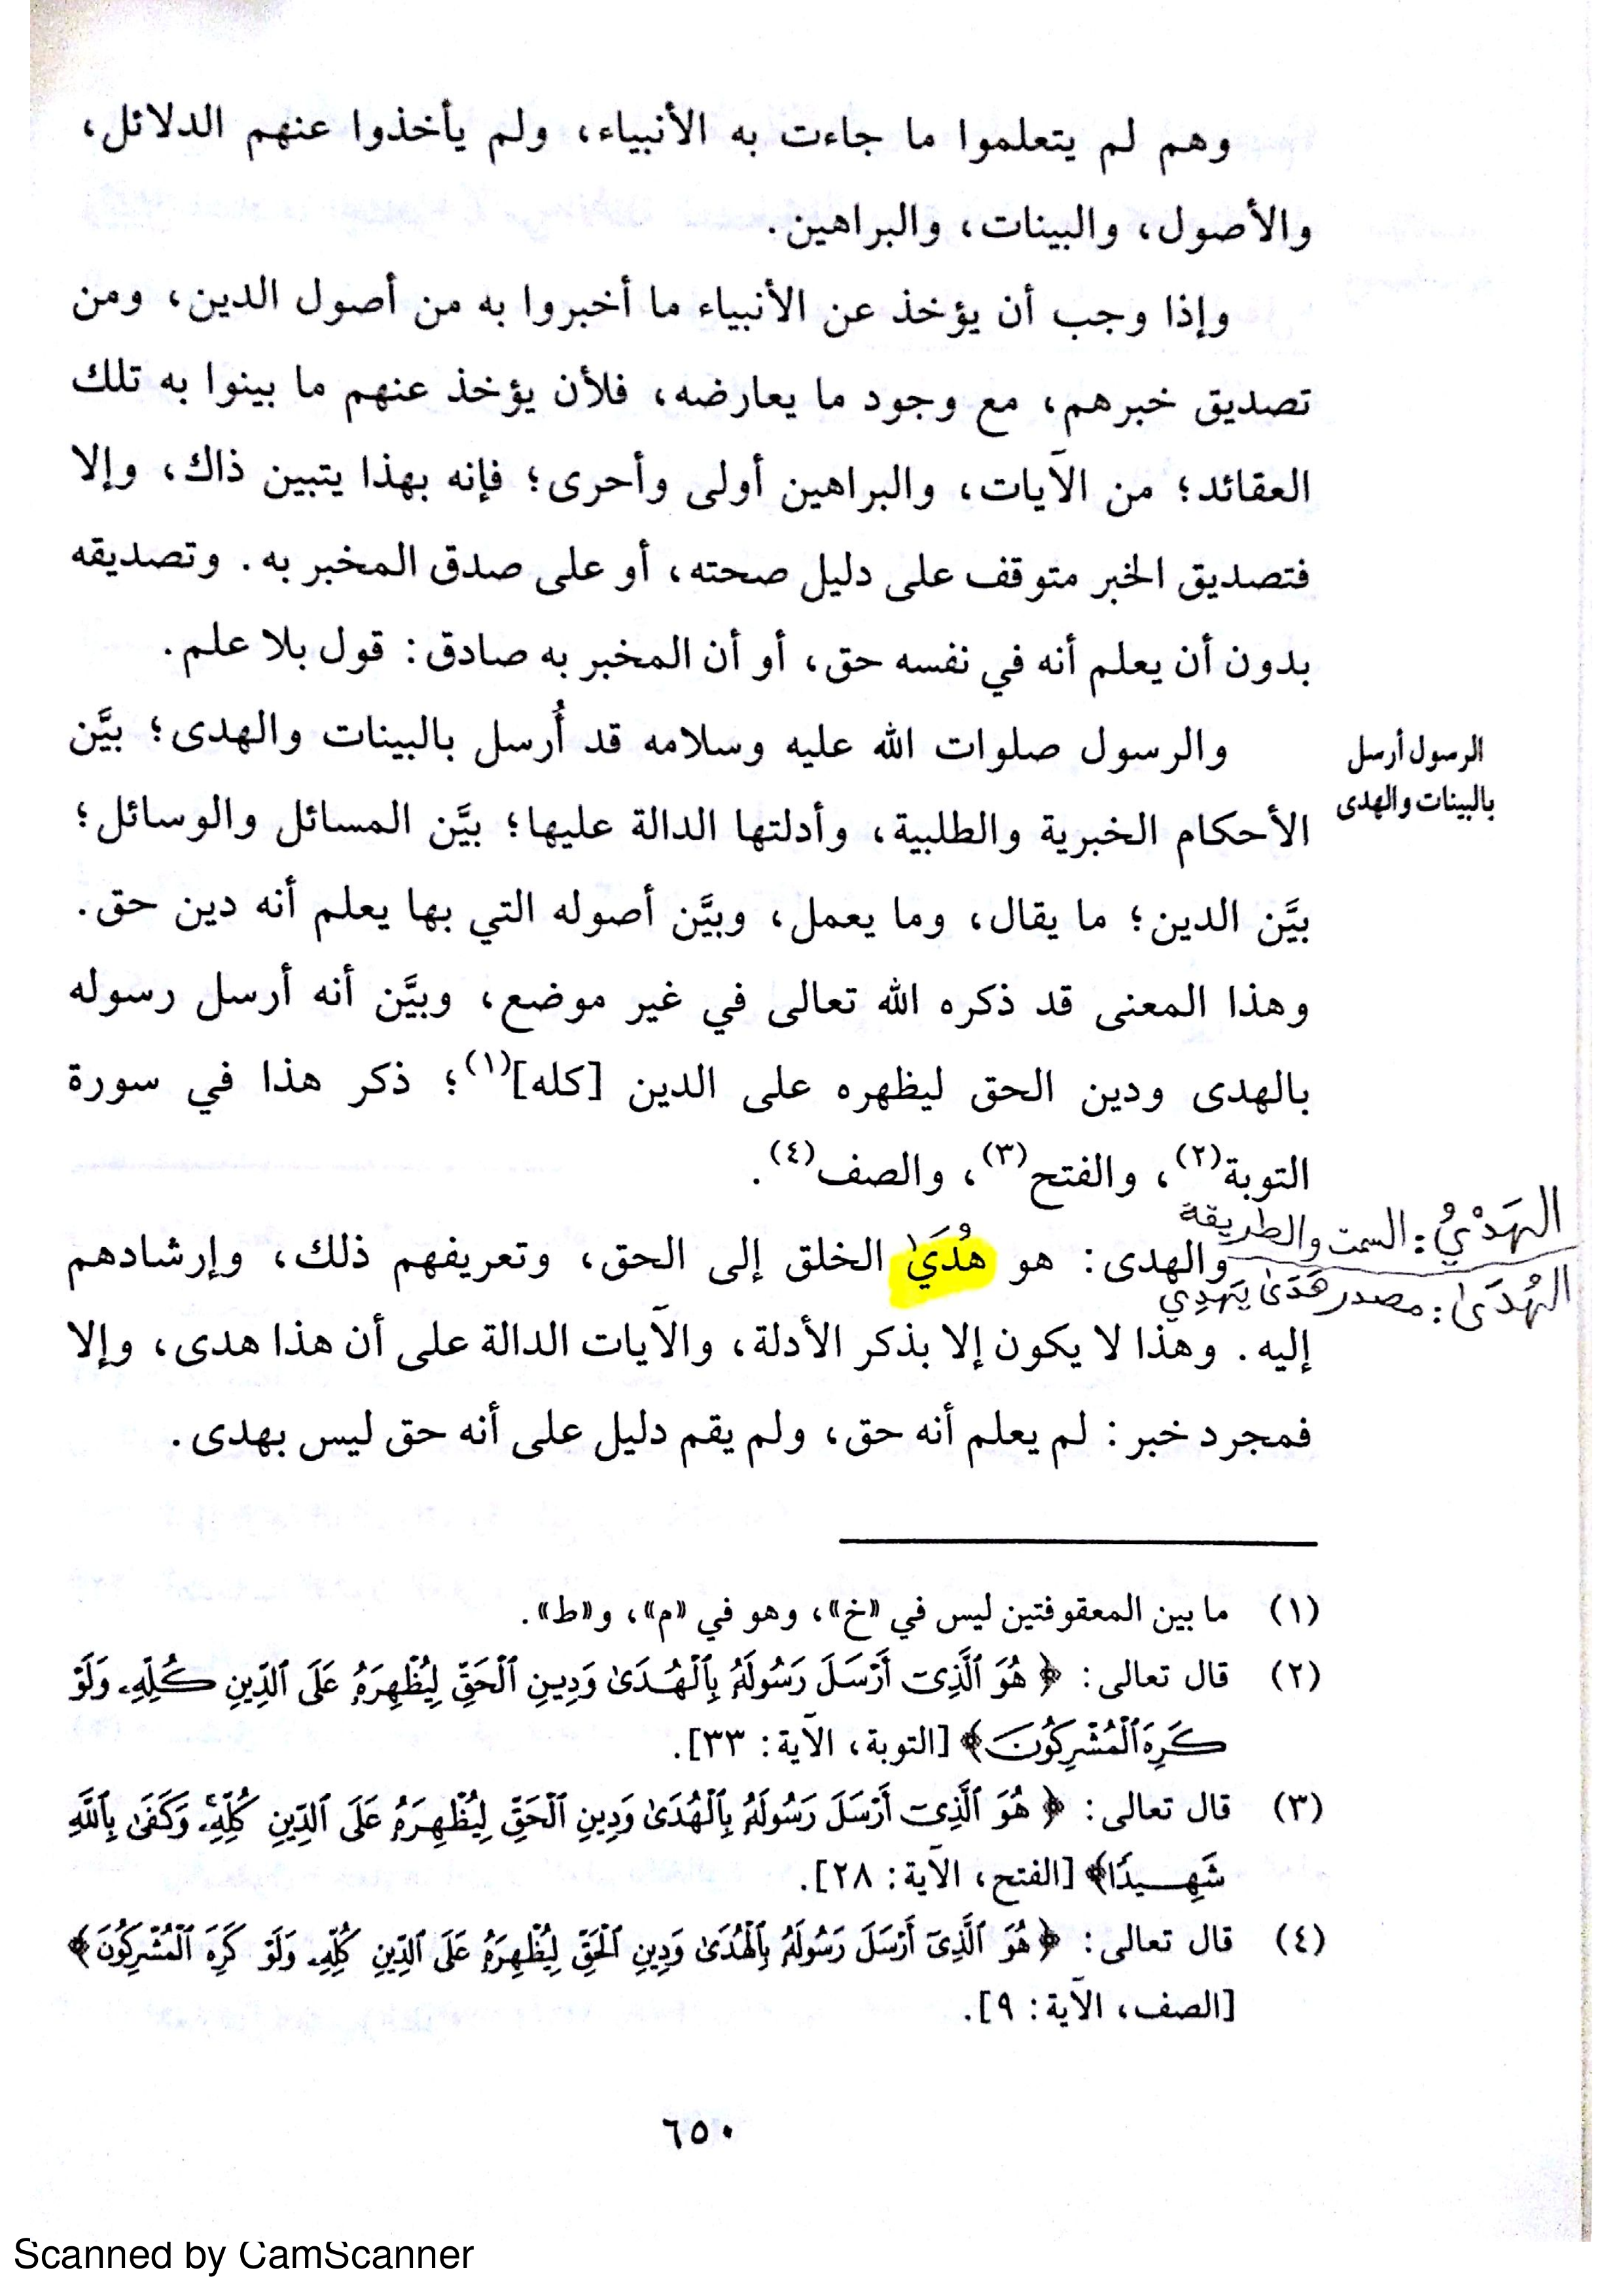 وهم لم يتعلموا ما جاءت به الأنبياء، ولم يأخذوا عنهم الدلائل،
والأصول، والبينات، والبراهين.
وإذا وجب أن يؤخذ عن الأنبياء ما أخبروا به من أصول الدين، ومن
تصديق خبرهم، مع وجود ما يعارضه، فلأن يؤخذ عنهم ما بينوا به تلك
العقائد؛ من الآيات، والبراهين أولى وأحرى؛ فإنه بهذا يتبين ذاك، وإلا
فتصديق الخبر متوقف على دليل صحته، أو على صدق المخبر به. وتصديقه
بدون أن يعلم أنه في نفسه حق، أو أن المخبر به صادق: قول بلا علم.
الرسول أرسل
بالبينات والهدى
والرسول صلوات الله عليه وسلامه قد أُرسل بالبينات والهدى؛ بيَّن
الأحكام الخبرية والطلبية، وأدلتها الدالة عليها؛ بيَّن المسائل والوسائل؛
بيَّن الدين؛ ما يقال، وما يعمل، وبيَّن أصوله التي بها يعلم أنه دين حق.
وهذا المعنى قد ذكره الله تعالى في غير موضع، وبيَّن أنه أرسل رسوله
بالهدى ودين الحق ليظهره على الدين [كله](١)؛ ذكر هذا في سورة
التوبة(٢)، والفتح(٣)، والصف(٤).
الهَدْيُ: السمت والطريقة
الهُدَىٰ: مصدر هَدَىٰ يَهدِي
والهدى: هو هُدَىٰ الخلق إلى الحق، وتعريفهم ذلك، وإرشادهم
إليه. وهذا لا يكون إلا بذكر الأدلة، والآيات الدالة على أن هذا هدى، وإلا
فمجرد خبر: لم يعلم أنه حق، ولم يقم دليل على أنه حق ليس بهدى.
(١) ما بين المعقوفتين ليس في «خ»، وهو في «م»، و«ط».
(٢) قال تعالى: ﴿هُوَ ٱلَّذِىٓ أَرْسَلَ رَسُولَهُۥ بِٱلْهُدَىٰ وَدِينِ ٱلْحَقِّ لِيُظْهِرَهُۥ عَلَى ٱلدِّينِ كُلِّهِۦ وَلَوْ
كَرِهَ ٱلْمُشْرِكُونَ﴾ [التوبة، الآية: ٣٣].
(٣) قال تعالى: ﴿هُوَ ٱلَّذِىٓ أَرْسَلَ رَسُولَهُۥ بِٱلْهُدَىٰ وَدِينِ ٱلْحَقِّ لِيُظْهِرَهُۥ عَلَى ٱلدِّينِ كُلِّهِۦۚ وَكَفَىٰ بِٱللَّهِ
شَهِيدًا﴾ [الفتح، الآية: ٢٨].
(٤) قال تعالى: ﴿هُوَ ٱلَّذِىٓ أَرْسَلَ رَسُولَهُۥ بِٱلْهُدَىٰ وَدِينِ ٱلْحَقِّ لِيُظْهِرَهُۥ عَلَى ٱلدِّينِ كُلِّهِۦ وَلَوْ كَرِهَ ٱلْمُشْرِكُونَ﴾
[الصف، الآية: ٩].
٦٥٠
Scanned by CamScanner